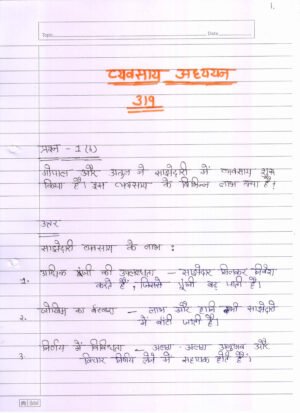 1.
Topic
Date
व्यवसाय अध्ययन
319
प्रश्न - 1 (A)
गोपाल और अतुल ने साझेदारी में व्यवसाय शुरू
किया है। इस व्यवसाय के विभिन्न लाभ क्या हैं?
उत्तर
साझेदारी व्यवसाय के लाभ :
1. अधिक पूंजी की उपलब्धता - साझेदार मिलकर निवेश
करते हैं, जिससे पूंजी बढ़ जाती है।
2. जोखिम का बंटवारा - लाभ और हानि सभी साझेदारो
में बांटी जाती है।
3. निर्णय में विविधता - अलग - अलग अनुभव और
विचार निर्णय लेने में सहायक होते हैं।